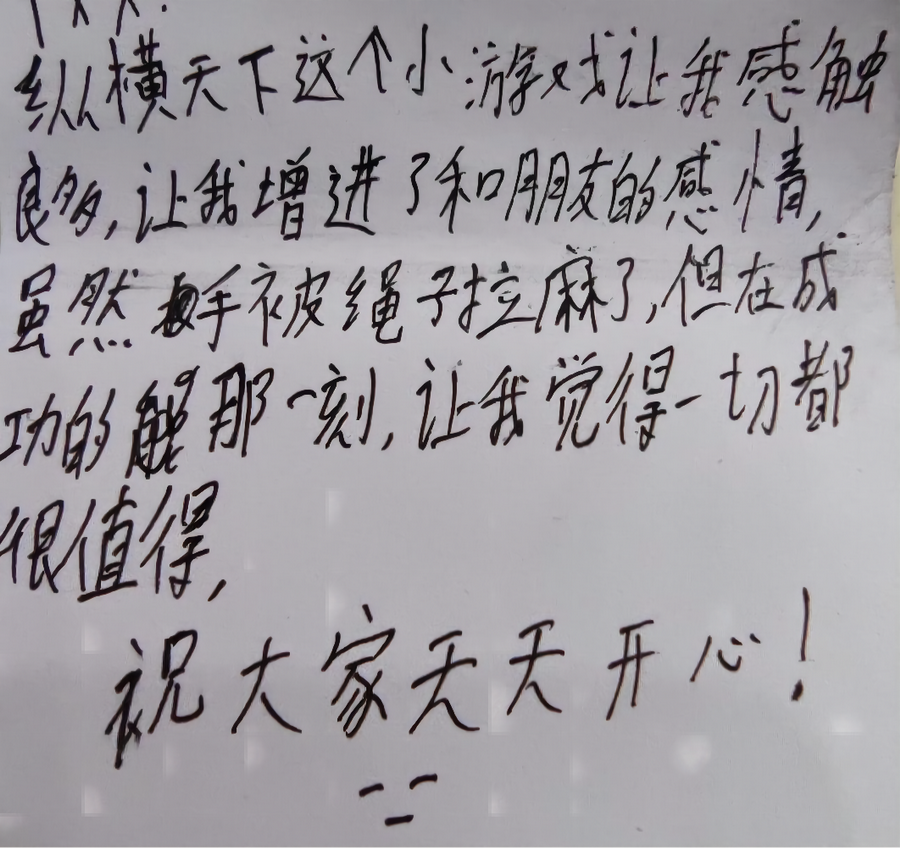 纵横天下这个小游戏让我感触
良多,让我增进了和朋友的感情,
虽然手被绳子拉麻了,但在成
功的那一刻,让我觉得一切都
很值得,
祝大家天天开心!